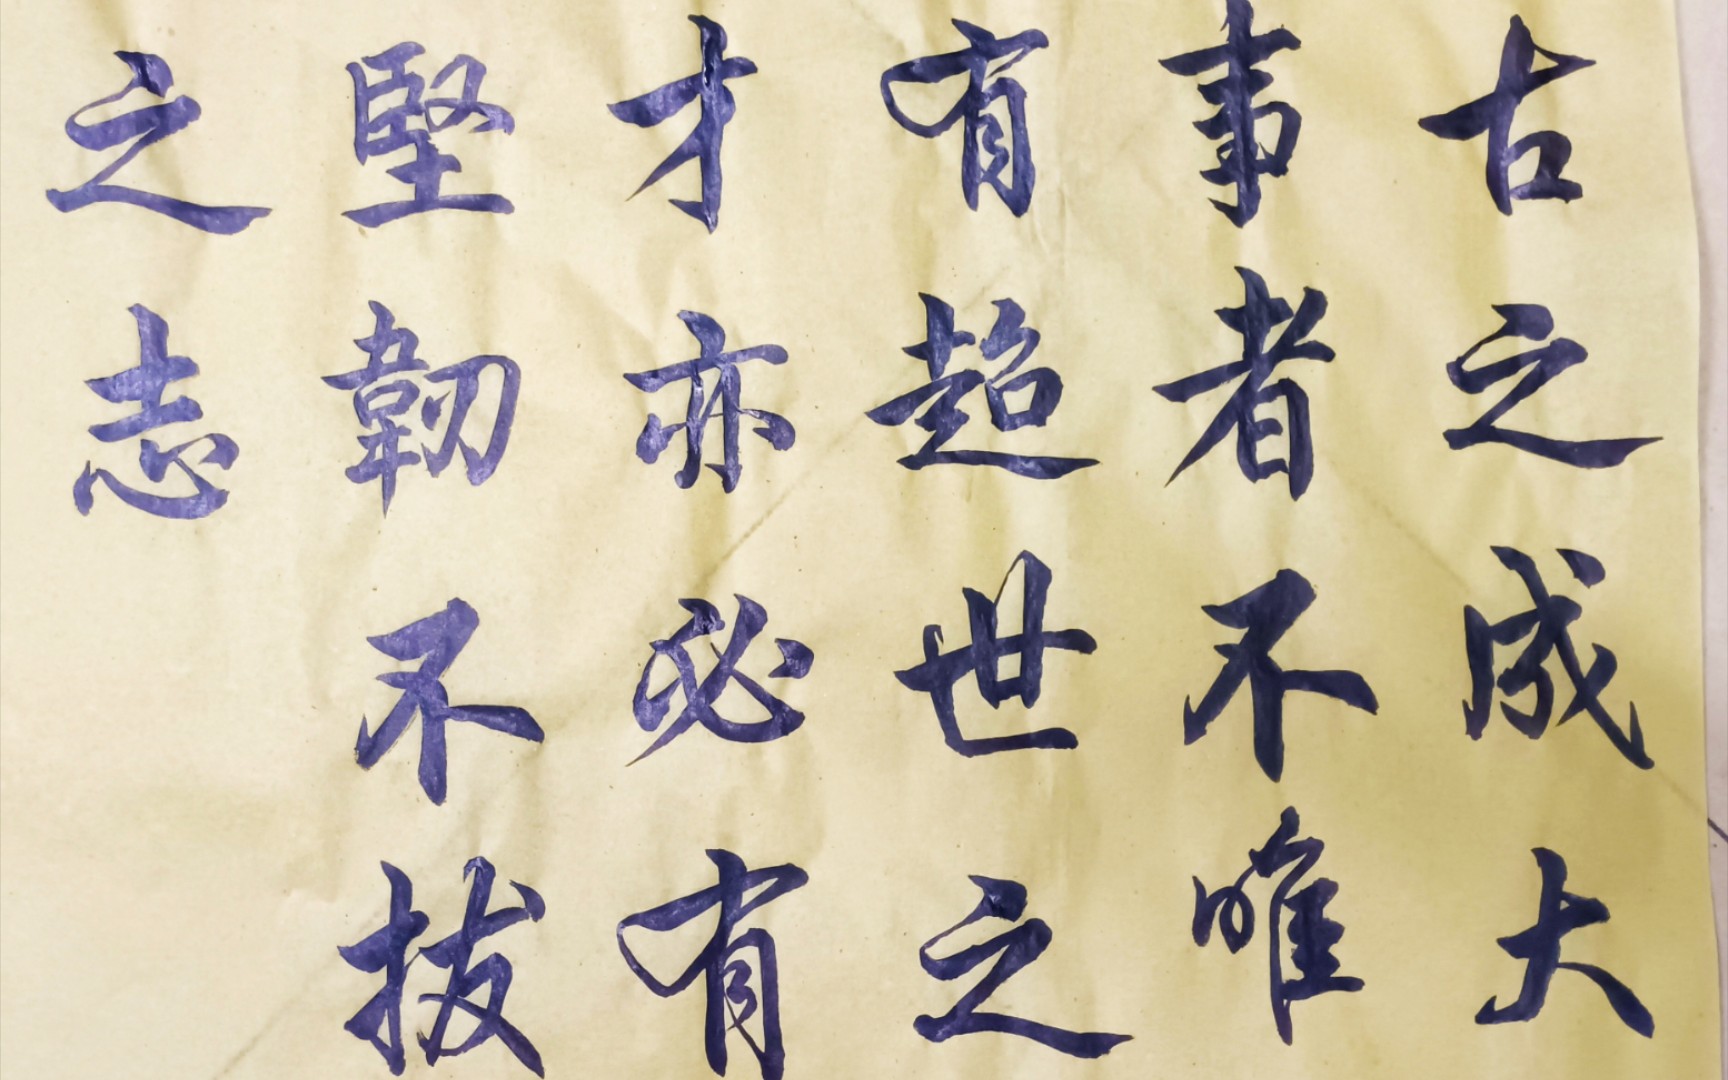 古之成大
事者不唯
有超世之
才亦必有
堅韌不拔
之志